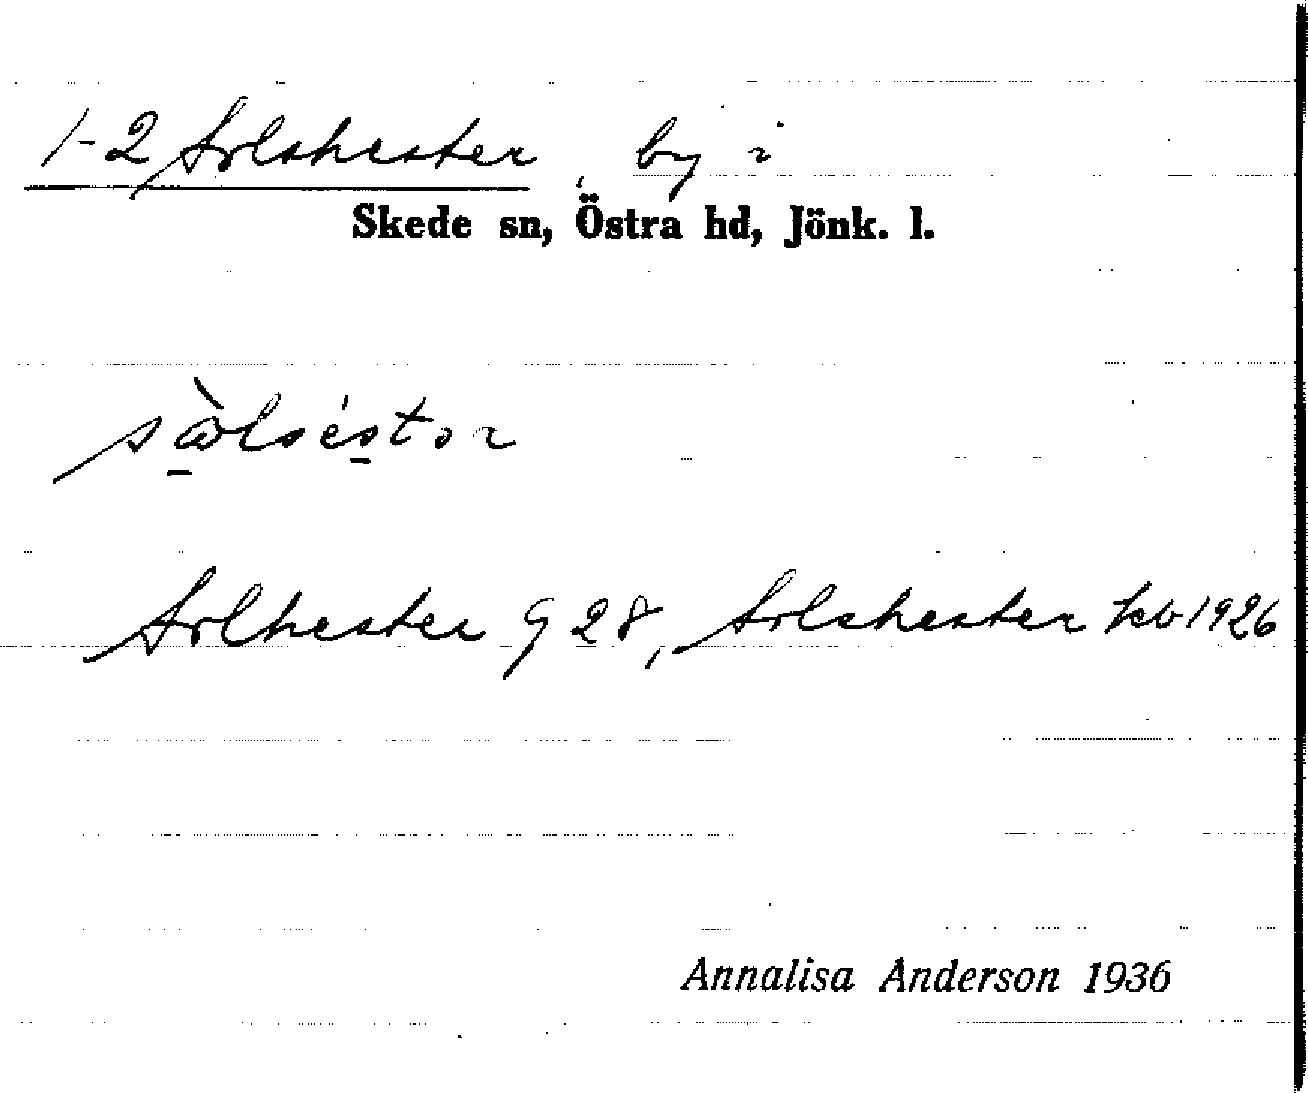 1-2 Solshester by i
Skede sn, Östra hd, Jönk. l.
Solhester G 28, Solshester kb 1926
Annalisa Anderson 1936